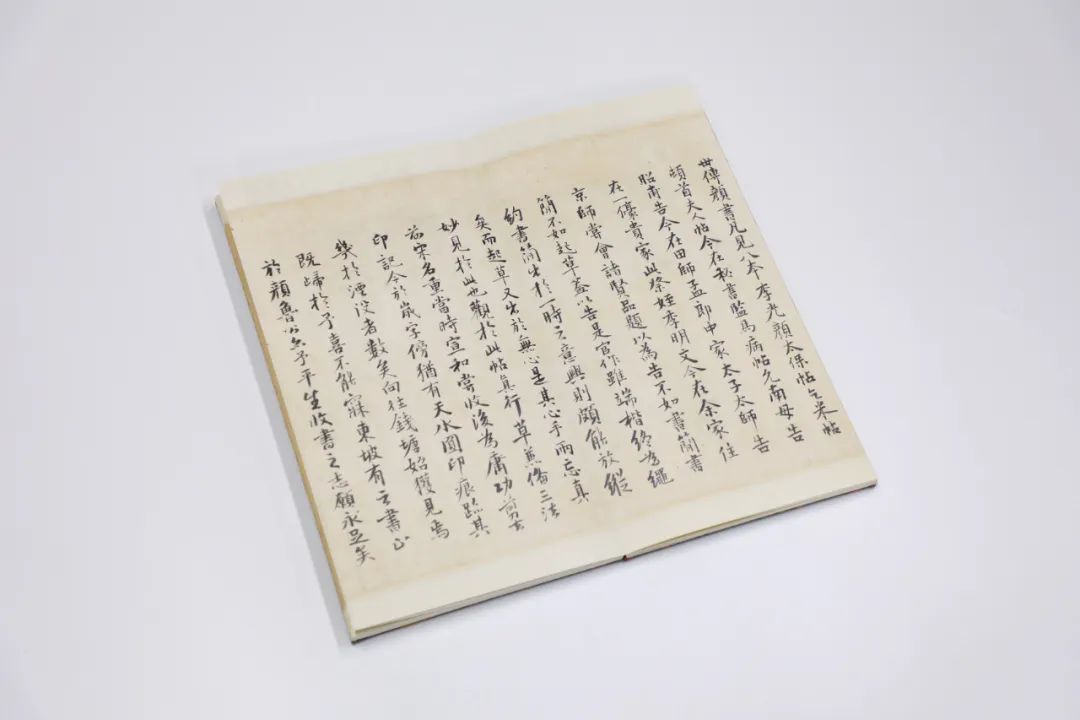 世傳顏書凡見八本李光顏太保帖乞米帖
頓首夫人帖今在秘書監馬病帖允南母告
昭甫告今在田師孟郎中家太子太師告
在一濠貴家此祭姪季明文今在余家往
京師嘗會諸賢品題以為告不如書簡書
簡不如起草蓋以告是官作雖端楷終為繩
約書簡出於一時之意興則頗能放縱
矣而起草又出於無心是其心手兩忘真
妙見於此也觀於此帖真行草蕉俻三法
前宋名重當時宣和嘗收後為庸功剪去
印記今於歲字傍猶有天水圓印痕跡其
幾於湮沒者數矣向往錢塘始獲見焉
既歸於予喜不能寐東坡有云書止
於顏魯公予平生收書之志願永足矣